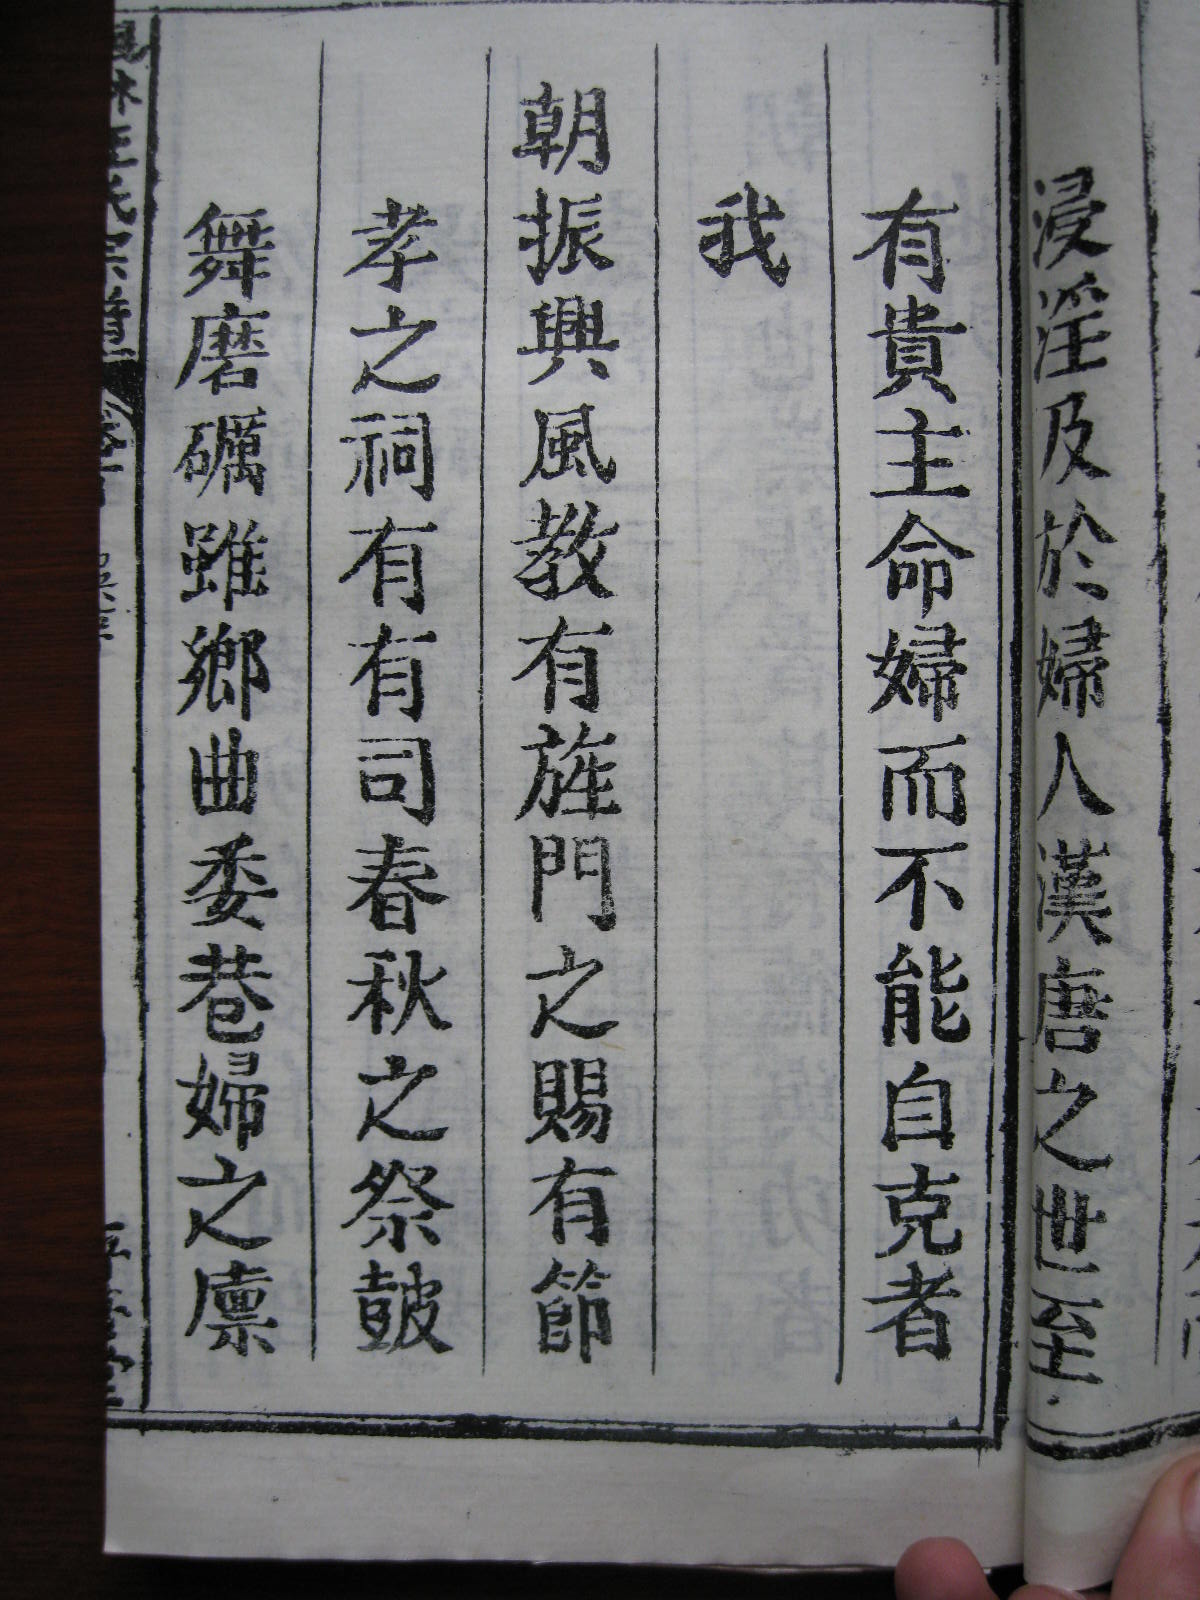 浸淫及於婦人漢唐之世至
有貴主命婦而不能自克者
我
朝振興風教有旌門之賜有節
孝之祠有有司春秋之祭皷
舞磨礪雖鄉曲委巷婦之廪
王氏宗譜